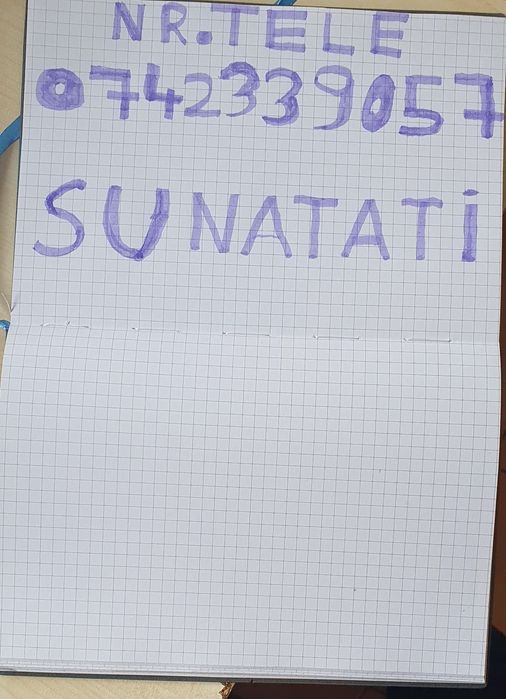 NR.TELE
0742339057
SUNATATI